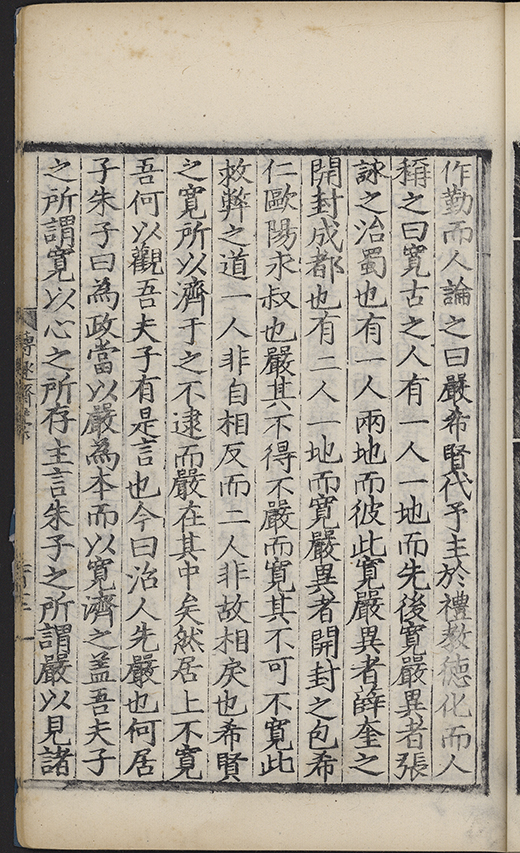 作勤而人論之曰嚴希賢代予主於禮教德化而人
稱之曰寬古之人有一人一地而先後寬嚴異者張
詠之治蜀也有一人兩地而彼此寬嚴異者薛奎之
開封成都也有二人一地而寬嚴異者開封之包希
仁歐陽永叔也嚴其不得不嚴而寬其不可不寬此
救弊之道一人非自相反而二人非故相戾也希賢
之寬所以濟于之不逮而嚴在其中矣然居上不寬
吾何以觀吾夫子有是言也今曰治人先嚴也何居
子朱子曰為政當以嚴為本而以寬濟之盖吾夫子
之所謂寬以心之所存主言朱子之所謂嚴以見諸